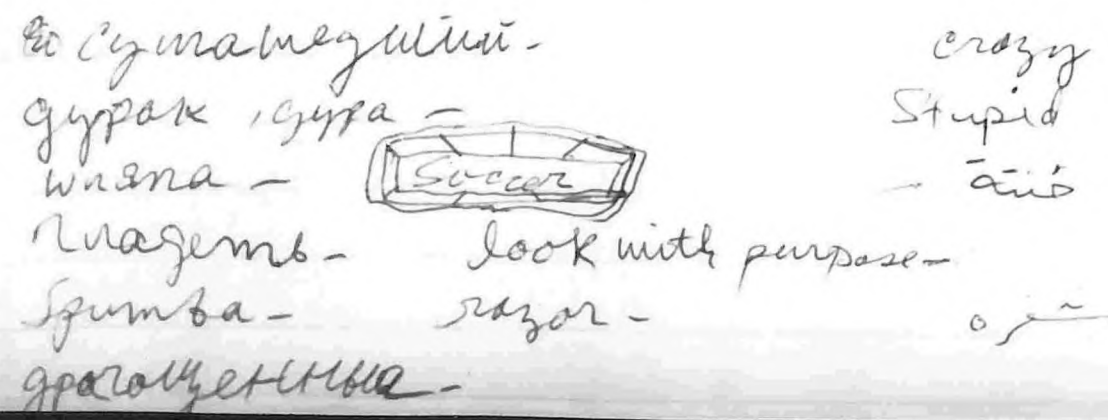 сумашедший - crazy
дурак, дура - Stupid
шляпа - Soccer -
Гладеть - look with purpose -
бритва - razor -